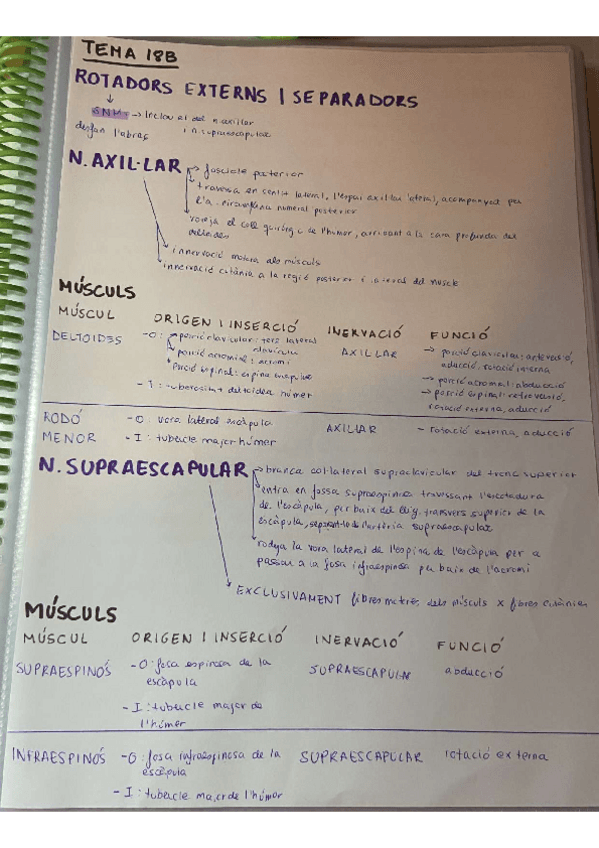 TEMA 18B
ROTADORS EXTERNS I SEPARADORS
SNMT → Inclou el del n. axilar
desfan l'abraç i n. supraescapular
N. AXIL·LAR → fascicle posterior
travessa en sentit lateral, l'espai axillar lateral, acompanyat per
l'a. circumflexa humeral posterior
rodeja el coll quirúrgic de l'húmer, arribant a la cara profunda del
deltoides
innervació motora als músculs
innervació cutània a la regió posterior i lateral del muscle
MÚSCULS
MÚSCUL ORIGEN I INSERCIÓ INERVACIÓ FUNCIÓ
DELTOIDES -O: porció clavicular: terç lateral AXILLAR → porció clavicular: anteversió,
clavícula aducció, rotació interna
porció acromial: acromi → porció acromial: abducció
porció espinal: espina escàpula → porció espinal: retroversió,
- I: tuberositat deltoidea húmer rotació externa, aducció
RODÓ - O: vora lateral escàpula AXILIAR - rotació externa, aducció
MENOR - I: tubercle major húmer
N. SUPRAESCAPULAR → branca col·lateral supraclavicular del tronc superior
entra en fossa supraespinosa travessant l'escotadura
de l'escàpula, per baix del llig. transvers superior de la
escàpula, separant-lo de l'artèria supraescapular
rodeja la vora lateral de l'espina de l'escàpula per a
passar a la fosa infraespinosa per baix de l'acromi
EXCLUSIVAMENT fibres motrius dels músculs x fibres cutànies
MÚSCULS
MÚSCUL ORIGEN I INSERCIÓ INERVACIÓ FUNCIÓ
SUPRAESPINÓS - O: fosa espinosa de la SUPRAESCAPULAR abducció
escàpula
- I: tubercle major de
l'húmer
INFRAESPINÓS - O: fosa infraespinosa de la SUPRAESCAPULAR rotació externa
escàpula
- I: tubercle major de l'húmer